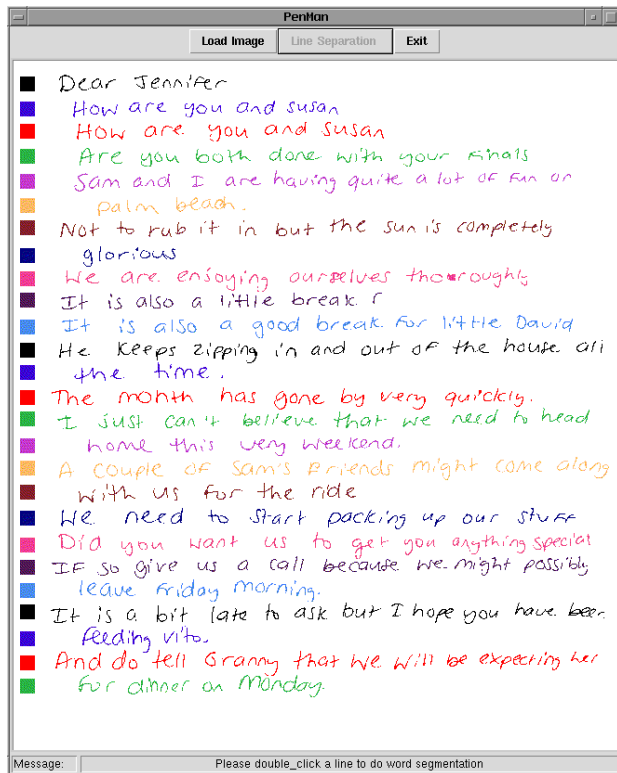 PenMan
Load Image Line Separation Exit
Dear Jennifer
How are you and susan
How are you and Susan
Are you both done with your finals
Sam and I are having quite a lot of fun on
palm beach.
Not to rub it in but the sun is completely
glorious
We are enjoying ourselves thoroughly
It is also a little break r
It is also a good break for little David
He keeps zipping in and out of the house all
the time.
The month has gone by very quickly.
I just can't believe that we need to head
home this very weekend.
A couple of Sam's friends might come along
with us for the ride
We need to start packing up our stuff
Did you want us to get you anything special
If so give us a call because we might possibly
leave Friday morning.
It is a bit late to ask but I hope you have been
feeding vito.
And do tell Granny that we will be expecting her
for dinner on Monday.
Message: Please double_click a line to do word segmentation